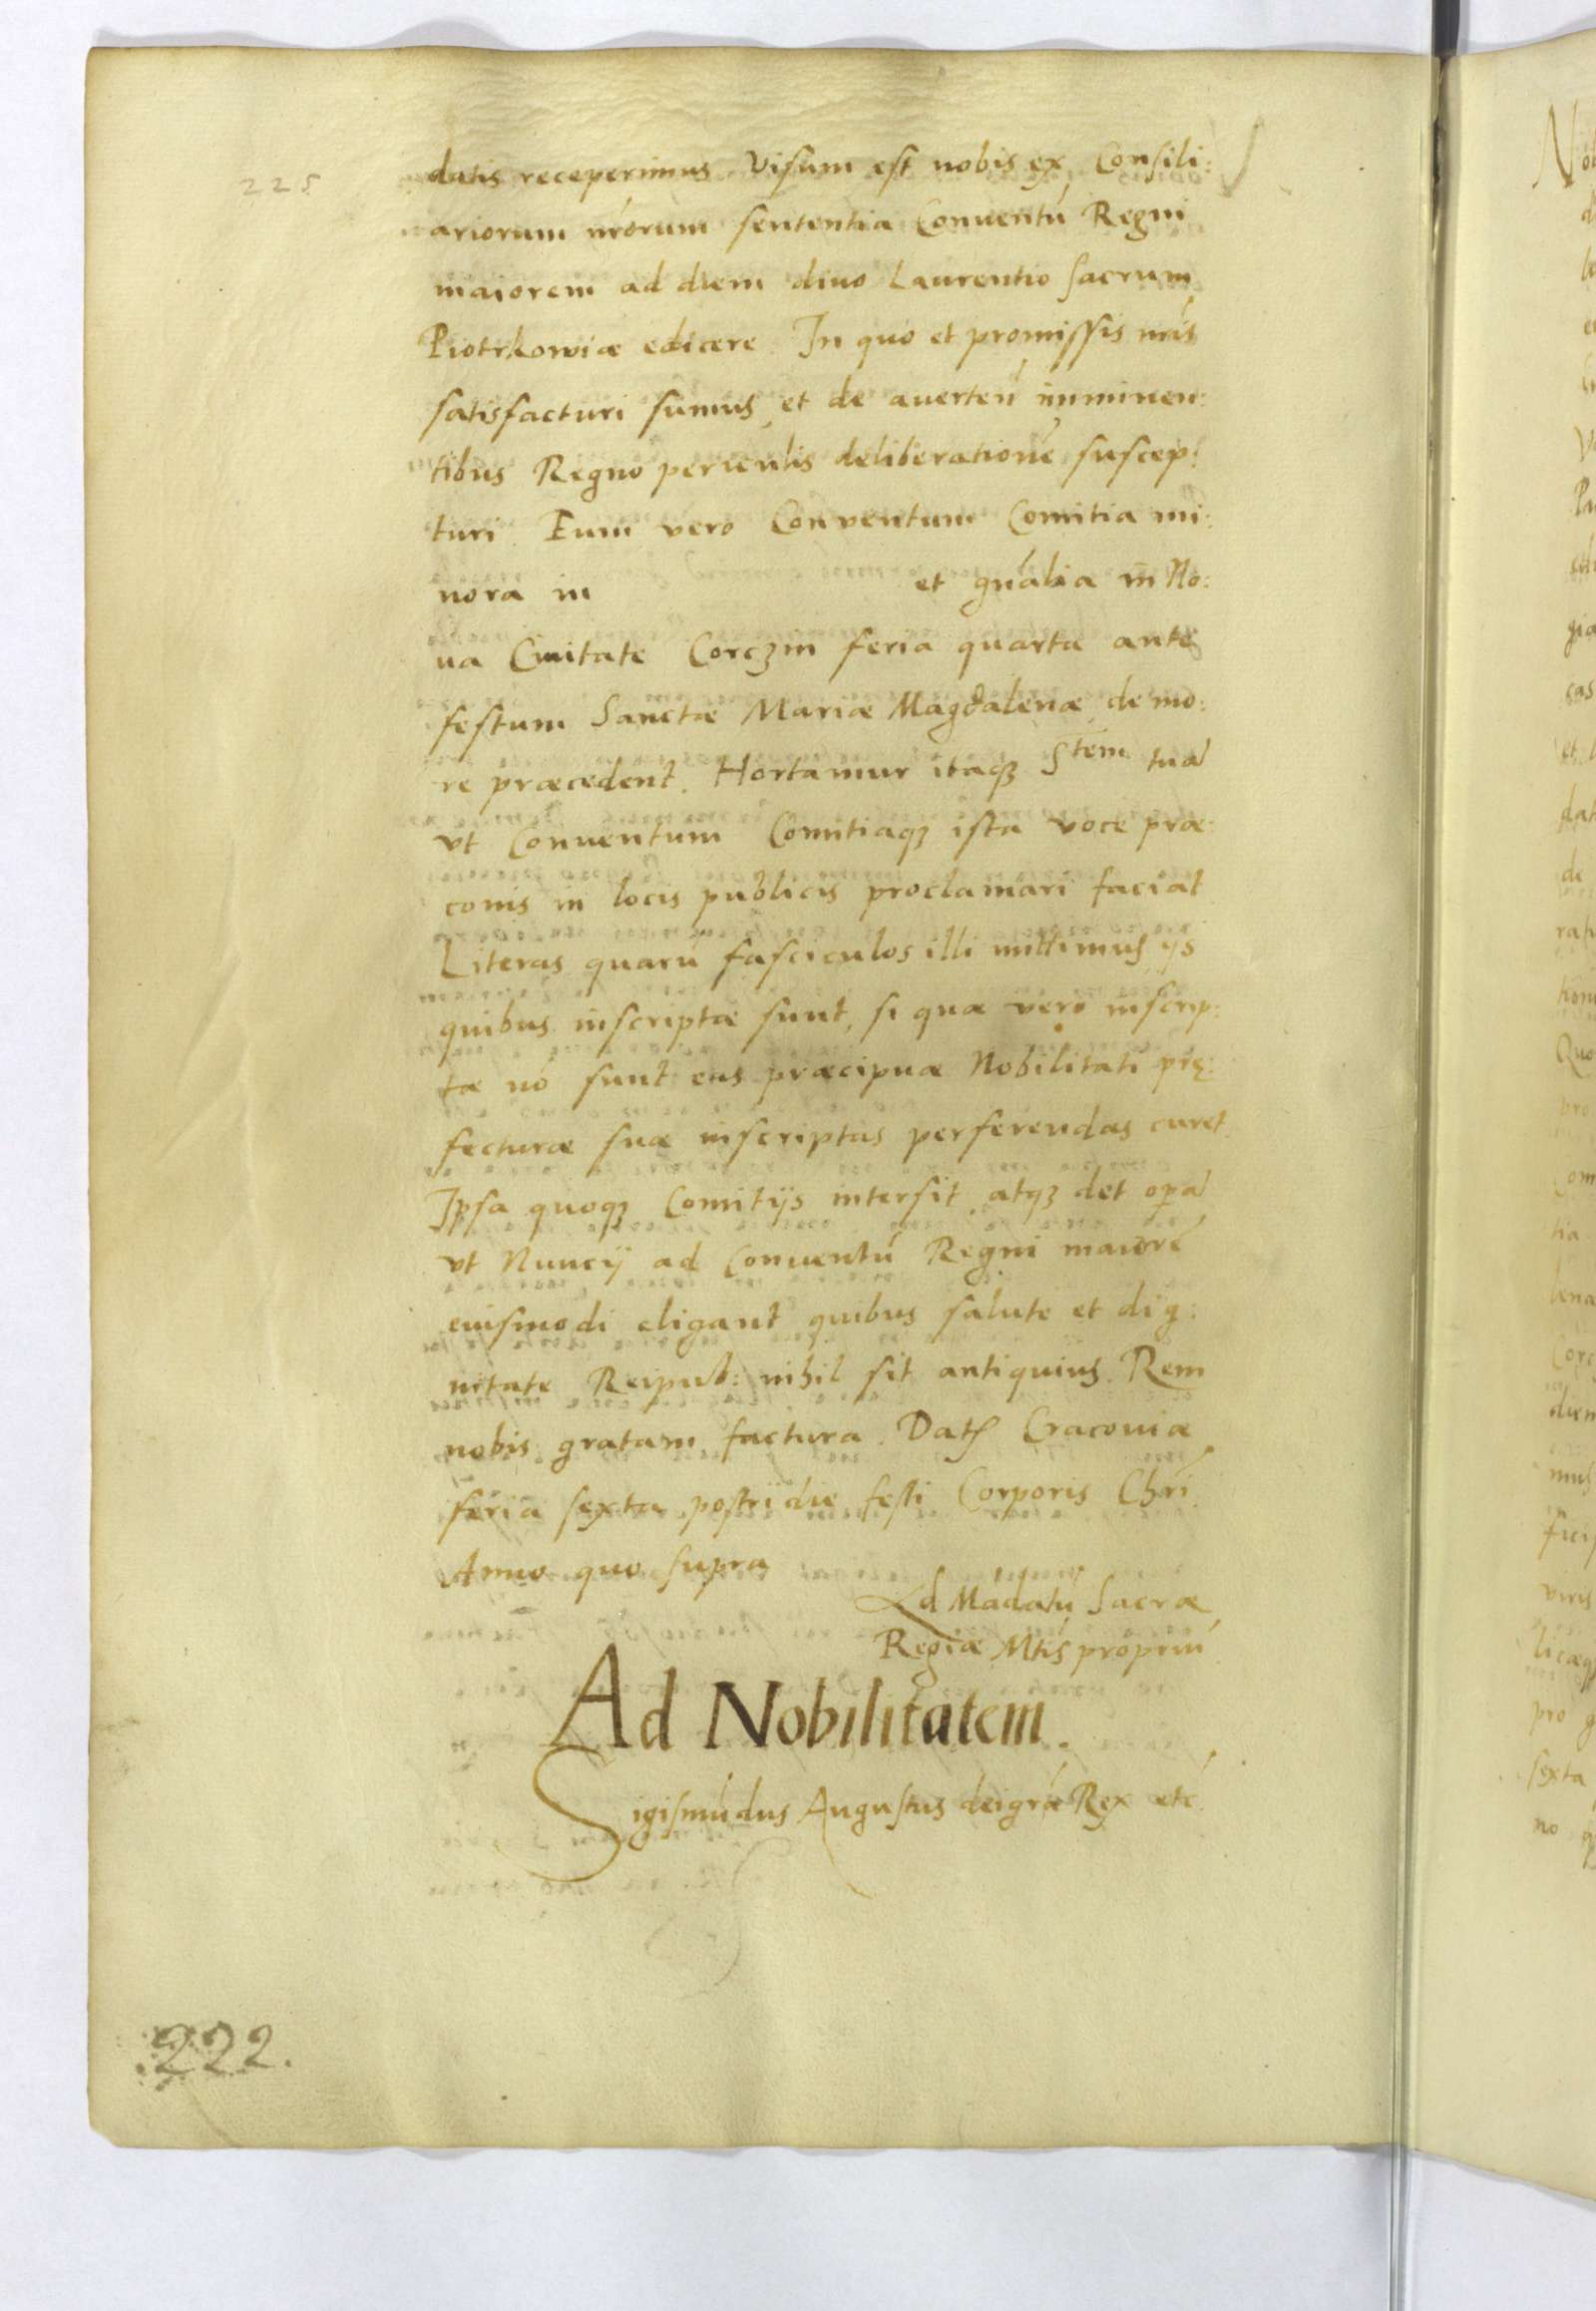 225
datis receperimus. Visum est nobis ex Consili:
ariorum nrórum sententia Conuentú Regni
maiorem ad diem diuo Laurentio sacrum
Piotrkowiæ edicere. In quo et promissis nrís
satisfacturi sumus, et de auerteń imminen:
tibus Regno periculis deliberationé suscep:
turi. Eum vero Conventum Comitia mi:
nora in et gnália in No:
ua Ciuitate Corczin feria quarta ante
festum Sanctæ Mariæ Magdalenæ de mo:
re præcedent. Hortamur itaqȝ Stem tuá
vt Conuentum Comitiaqȝ ista voce præ:
conis in locis publicis proclamari faciat
Literas quarú fasciculos illi mittimus ijs
quibus inscriptæ sunt, si quæ vero inscrip:
tæ nó sunt eas præcipuæ Nobilitati prę:
fecturæ suæ inscriptas perferendas curet.
Ipsa quoqȝ Comitijs intersit atqȝ det operá
vt Nuncij ad Conuentú Regni maioré
eiusmodi eligant quibus salute et dig:
nitate Reipub: nihil sit antiquius. Rem
nobis gratam factura. Dat Cracouiæ
feria sexta postridie festi Corporis Chrí
Anno quo supra
Ad Mádatú Sacræ
Regiæ Mtis propriú
Ad Nobilitatem.
Sigismúdus Augustus dei grá Rex etć
222.